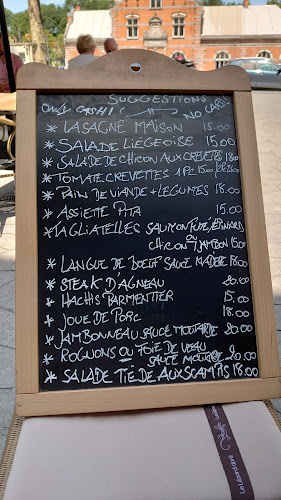 SUGGESTIONS
ONLY CASH! NO CARD!
* LASAGNE MAISON 15.00
* SALADE LIEGEOISE 15.00
* SALADE DE CHICON AUX CREVETTES 18.00
* TOMATE CREVETTES 1 PC 15.00
* PAIN DE VIANDE + LEGUMES 18.00
* ASSIETTE PITA 15.00
* TAGLIATELLES SAUMON FUMÉ, EPINARD
CHICON OU JAMBON 15.00
* LANGUE DE BOEUF SAUCE MADÈRE 18.00
* STEAK D'AGNEAU 20.00
* HACHIS PARMENTIER 15.00
* JOUE DE PORC 18.00
* JAMBONNEAU SAUCE MOUTARDE 20.00
* ROGNONS OU FOIE DE VEAU
SAUCE MOUTARDE 20.00
* SALADE TIÈDE AUX SCAMPIS 18.00